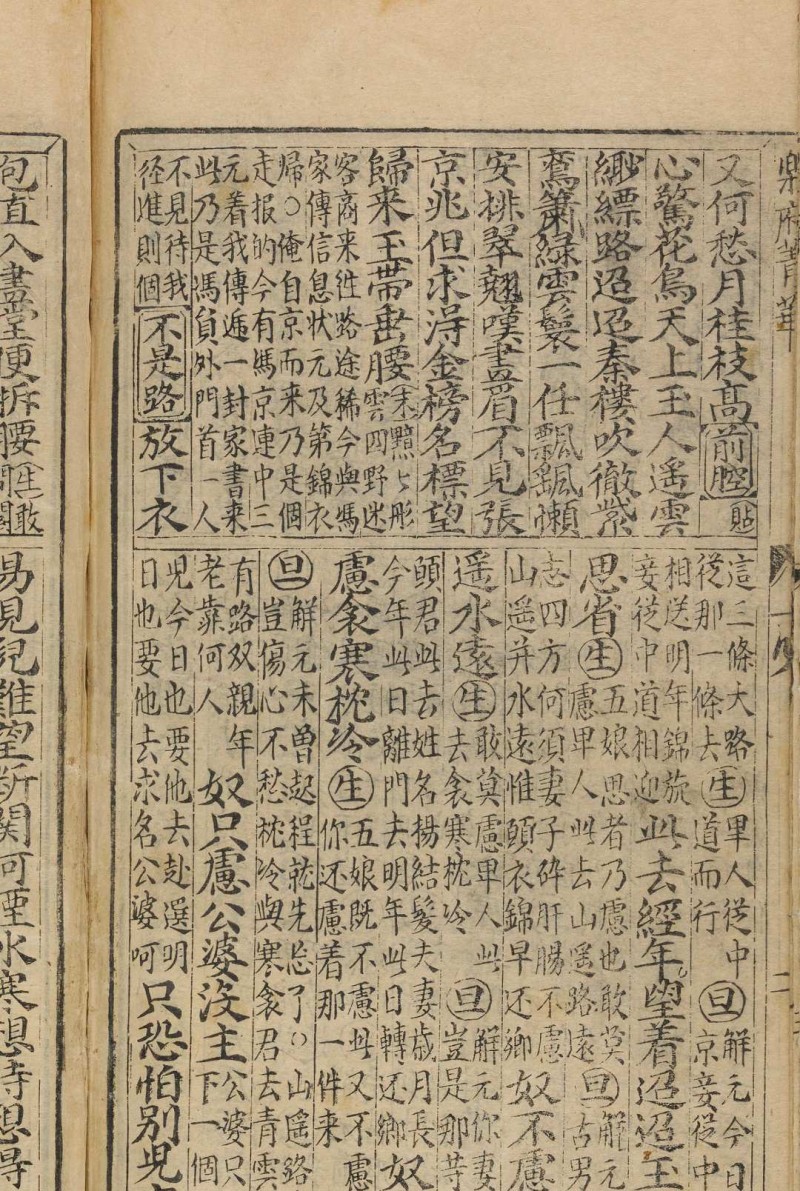 樂府菁華
又何愁月桂枝高前腔貼
心驚花鳥天上玉人遥雲
緲縹路迢迢秦樓吹徹紫
鸞簫綠雲鬟一任飄飄懶
安排翠翹嘆畫眉不見張
京兆但求淂金榜名標望
歸来玉帶垂腰末黯〻彤
雲四野迷
客商来徃路途稀今與馮
家傳信息状元及第錦衣
帰〇俺自京而来乃是個
走报的今有馮京連中三
元着我傳逓一封家書来
此乃是馮員外門首一人
不見待我
径進則個不是路放下衣
這三條大路
從那一條去生畢人從中
道而行旦解元今日
京妾從中
相送明年錦旋
妾從中道相迎此去經年望着迢迢玉
思省生五娘思者乃慮也敢莫
慮畢人此去山遥路遠旦解元
古男
志四方何須妻子碎肝腸不慮
山遥并水遠惟願衣錦早还鄉奴不慮
遥水遠生敢莫慮畢人此
去衾寒枕冷旦解元你妻
豈是那等
頭君此去姓名揚結髮夫妻歲月長
今年此日離門去明年此日轉还鄉奴
慮衾寒枕冷生五娘既不慮此又不慮
你还慮着那一件来
旦解元未曾起程就先忘了〇山遥路
豈傷心不愁枕冷與寒衾君去青雲
有路双親年
老靠何人奴只慮公婆没主公婆只
下一個
児今日也要他去赴選明
日也要他去求名公婆呵只恐怕别児
包直入畫堂便拆腰生敢
易見紀難望斷関河煙水寒想時想得